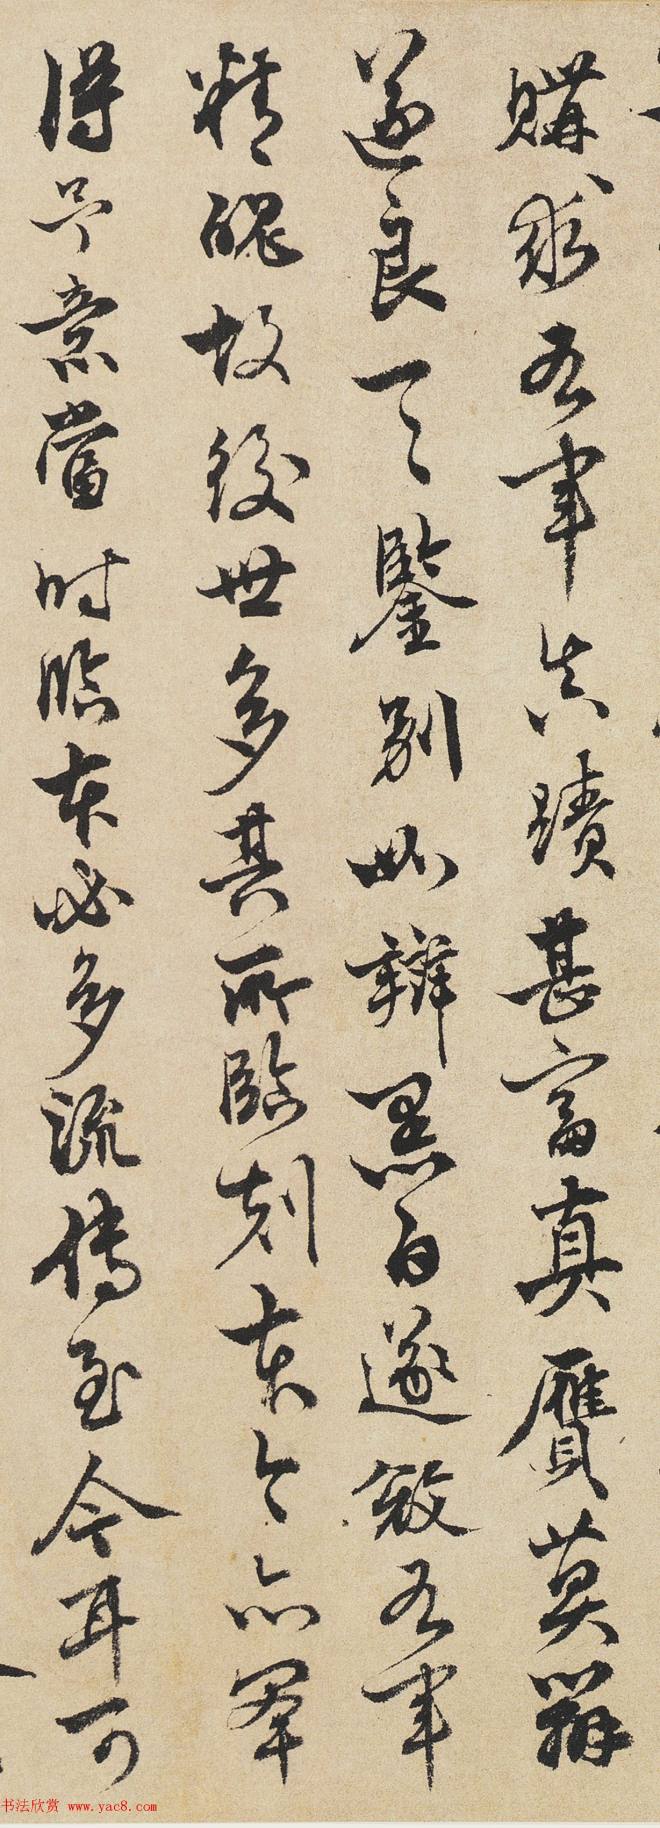 購求右軍真蹟甚富真贗莫辨
遂良一一鑒別如辨黑白遂右軍
精魄故後世多其所臨刻本今亦罕
得予意當時臨本必多流傳至今耳可
书法欣赏 www.yac8.com